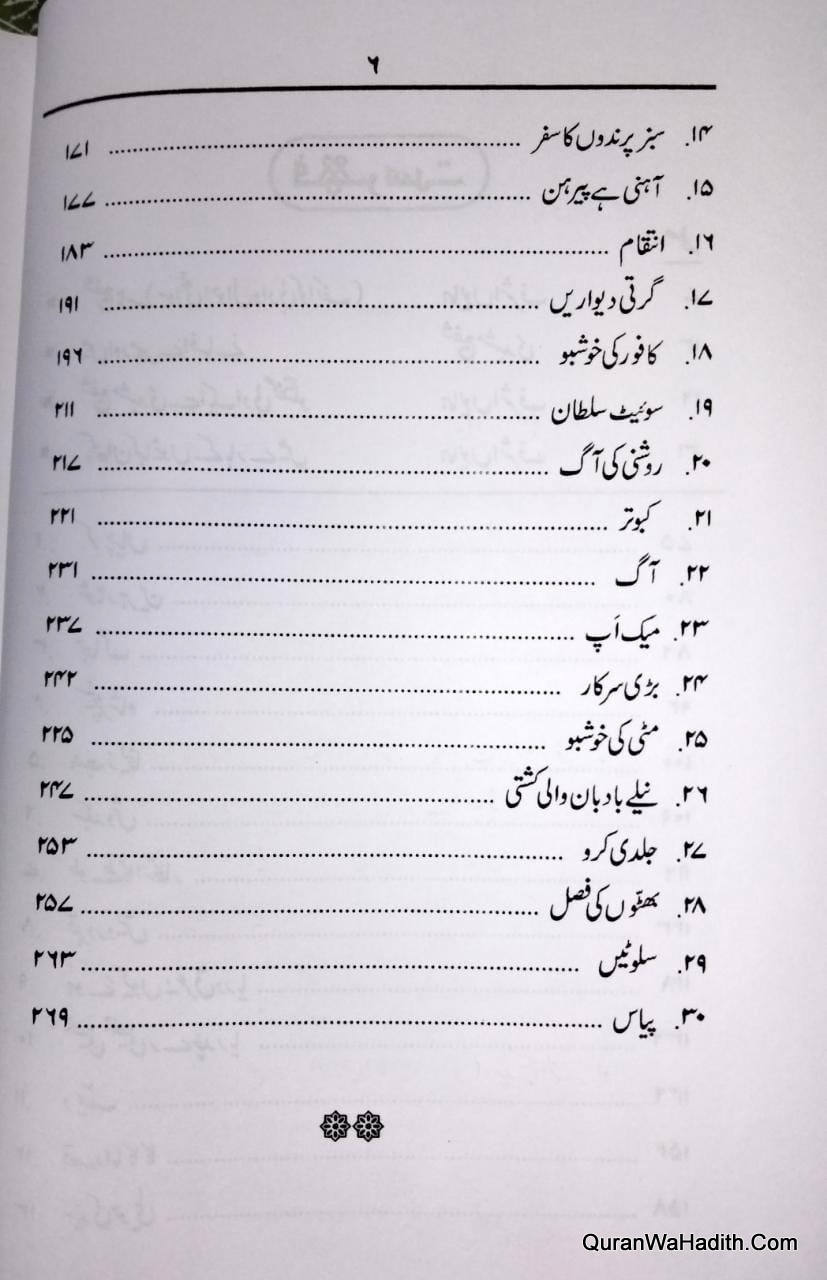 ۶
۱۴. سبز پرندوں کا سفر ........ ۱۷۱
۱۵. آہنی ہے پیرہن ........ ۱۷۷
۱۶. انتقام ........ ۱۸۳
۱۷. گرتی دیواریں ........ ۱۹۱
۱۸. کافور کی خوشبو ........ ۱۹۶
۱۹. سوئیٹ سلطان ........ ۲۱۱
۲۰. روشنی کی آگ ........ ۲۱۷
۲۱. کبوتر ........ ۲۲۱
۲۲. آگ ........ ۲۳۱
۲۳. میک اَپ ........ ۲۳۷
۲۴. بڑی سرکار ........ ۲۴۲
۲۵. مٹی کی خوشبو ........ ۲۲۵
۲۶. نیلے بادبان والی کشتی ........ ۲۴۷
۲۷. جلدی کرو ........ ۲۵۳
۲۸. بھٹّوں کی فصل ........ ۲۵۷
۲۹. سلوٹیں ........ ۲۶۳
۳۰. پیاس ........ ۲۶۹
QuranWaHadith.Com